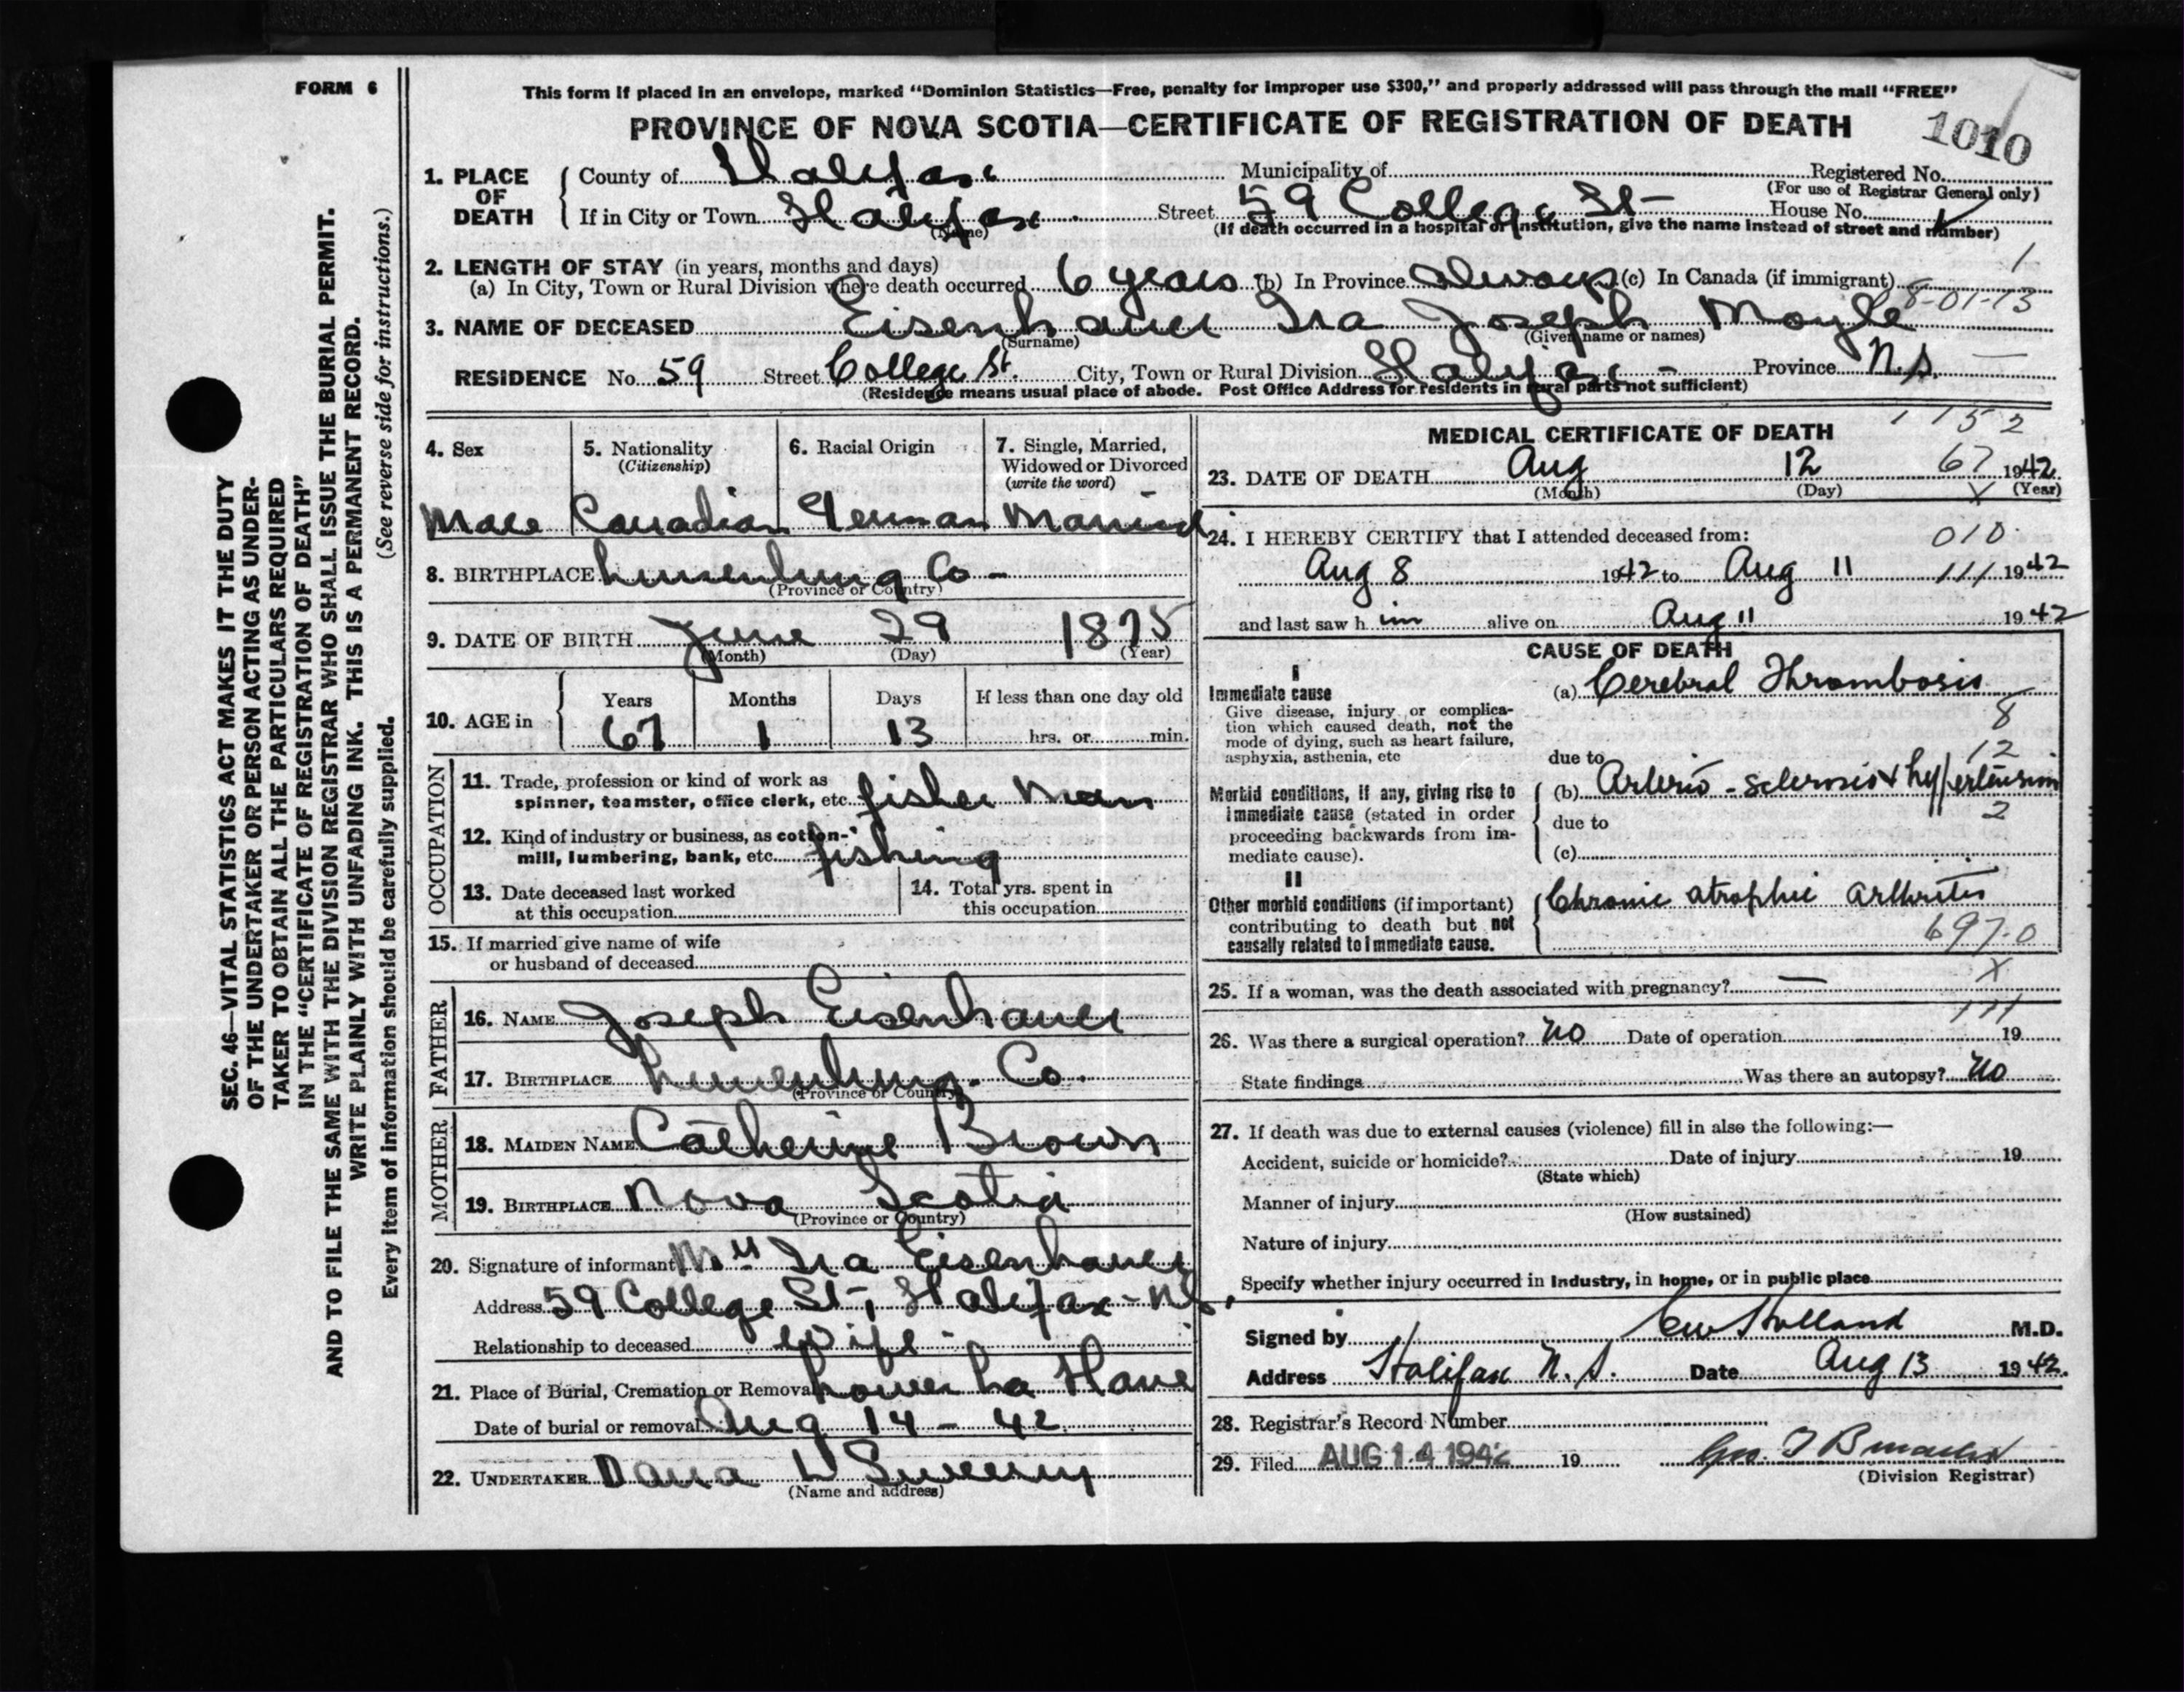 FORM 6
This form if placed in an envelope, marked "Dominion Statistics—Free, penalty for improper use $300," and properly addressed will pass through the mail "FREE"
PROVINCE OF NOVA SCOTIA—CERTIFICATE OF REGISTRATION OF DEATH
1010
1. PLACE OF DEATH
County of Halifax Municipality of Registered No.
(For use of Registrar General only)
If in City or Town Halifax Street 59 College St- House No.
(Name) (If death occurred in a hospital or institution, give the name instead of street and number)
1
2. LENGTH OF STAY (in years, months and days)
(a) In City, Town or Rural Division where death occurred 6 years (b) In Province always (c) In Canada (if immigrant)
8-01-13
3. NAME OF DECEASED Eisenhauer Ira Joseph Moyle
(Surname) (Given name or names)
RESIDENCE No. 59 Street College St. City, Town or Rural Division Halifax - Province N.S.
(Residence means usual place of abode. Post Office Address for residents in rural parts not sufficient)
4. Sex 5. Nationality (Citizenship) 6. Racial Origin 7. Single, Married, Widowed or Divorced (write the word)
Male Canadian German Married
8. BIRTHPLACE Lunenburg Co-
(Province or Country)
9. DATE OF BIRTH June 29 1875
(Month) (Day) (Year)
10. AGE in Years Months Days If less than one day old
67 1 13 hrs. or min.
OCCUPATION
11. Trade, profession or kind of work as
spinner, teamster, office clerk, etc. fisher man
12. Kind of industry or business, as cotton-
mill, lumbering, bank, etc. fishing
13. Date deceased last worked
at this occupation
14. Total yrs. spent in
this occupation
15. If married give name of wife
or husband of deceased
FATHER
16. NAME Joseph Eisenhauer
17. BIRTHPLACE Lunenburg. Co.
(Province or Country)
MOTHER
18. MAIDEN NAME Catherine Brown
19. BIRTHPLACE Nova Scotia
(Province or Country)
20. Signature of informant Mrs Ira Eisenhauer
Address 59 College St, Halifax-NS,
Relationship to deceased wife
21. Place of Burial, Cremation or Removal Lower La Have
Date of burial or removal Aug 14 - 42
22. UNDERTAKER Dana W Sweeny
(Name and address)
1152
MEDICAL CERTIFICATE OF DEATH
23. DATE OF DEATH Aug 12 67 1942
(Month) (Day) (Year)
X
24. I HEREBY CERTIFY that I attended deceased from:
010
Aug 8 1942 to Aug 11 111 1942
and last saw h im alive on Aug 11 1942
CAUSE OF DEATH
I
Immediate cause
Give disease, injury or complica-
tion which caused death, not the
mode of dying, such as heart failure,
asphyxia, asthenia, etc
(a) Cerebral Thrombosis
8
12
due to
Morbid conditions, if any, giving rise to
immediate cause (stated in order
proceeding backwards from im-
mediate cause).
(b) Arterio-sclerosis & hypertension
2
due to
(c)
II
Other morbid conditions (if important)
contributing to death but not
causally related to immediate cause.
Chronic atrophic arthritis
697-0
X
25. If a woman, was the death associated with pregnancy? —
111
26. Was there a surgical operation? No Date of operation 19
State findings Was there an autopsy? No
27. If death was due to external causes (violence) fill in also the following:—
Accident, suicide or homicide? Date of injury 19
(State which)
Manner of injury
(How sustained)
Nature of injury
Specify whether injury occurred in industry, in home, or in public place
Signed by CW Holland M.D.
Address Halifax N.S. Date Aug 13 1942.
28. Registrar's Record Number
29. Filed AUG 14 1942 19
(Division Registrar)
SEC. 46—VITAL STATISTICS ACT MAKES IT THE DUTY
OF THE UNDERTAKER OR PERSON ACTING AS UNDER-
TAKER TO OBTAIN ALL THE PARTICULARS REQUIRED
IN THE "CERTIFICATE OF REGISTRATION OF DEATH"
AND TO FILE THE SAME WITH THE DIVISION REGISTRAR WHO SHALL ISSUE THE BURIAL PERMIT.
WRITE PLAINLY WITH UNFADING INK. THIS IS A PERMANENT RECORD.
Every item of information should be carefully supplied. (See reverse side for instructions.)